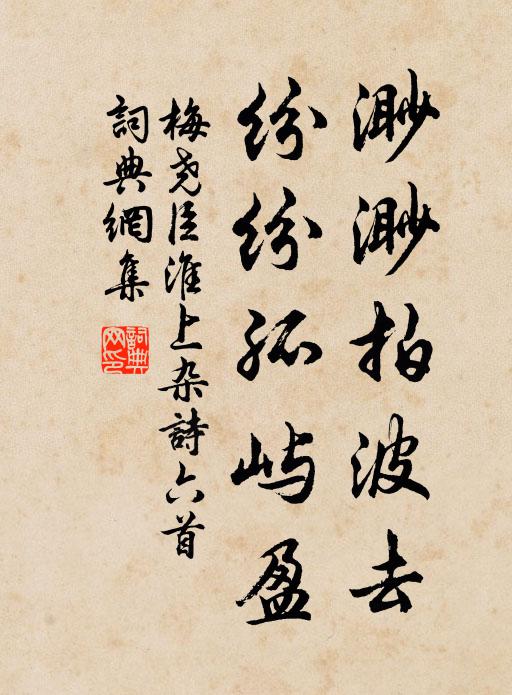 渺渺拍波去
纷纷孤屿盈
梅尧臣淮上杂詩六首
詞典網集
詞典网印